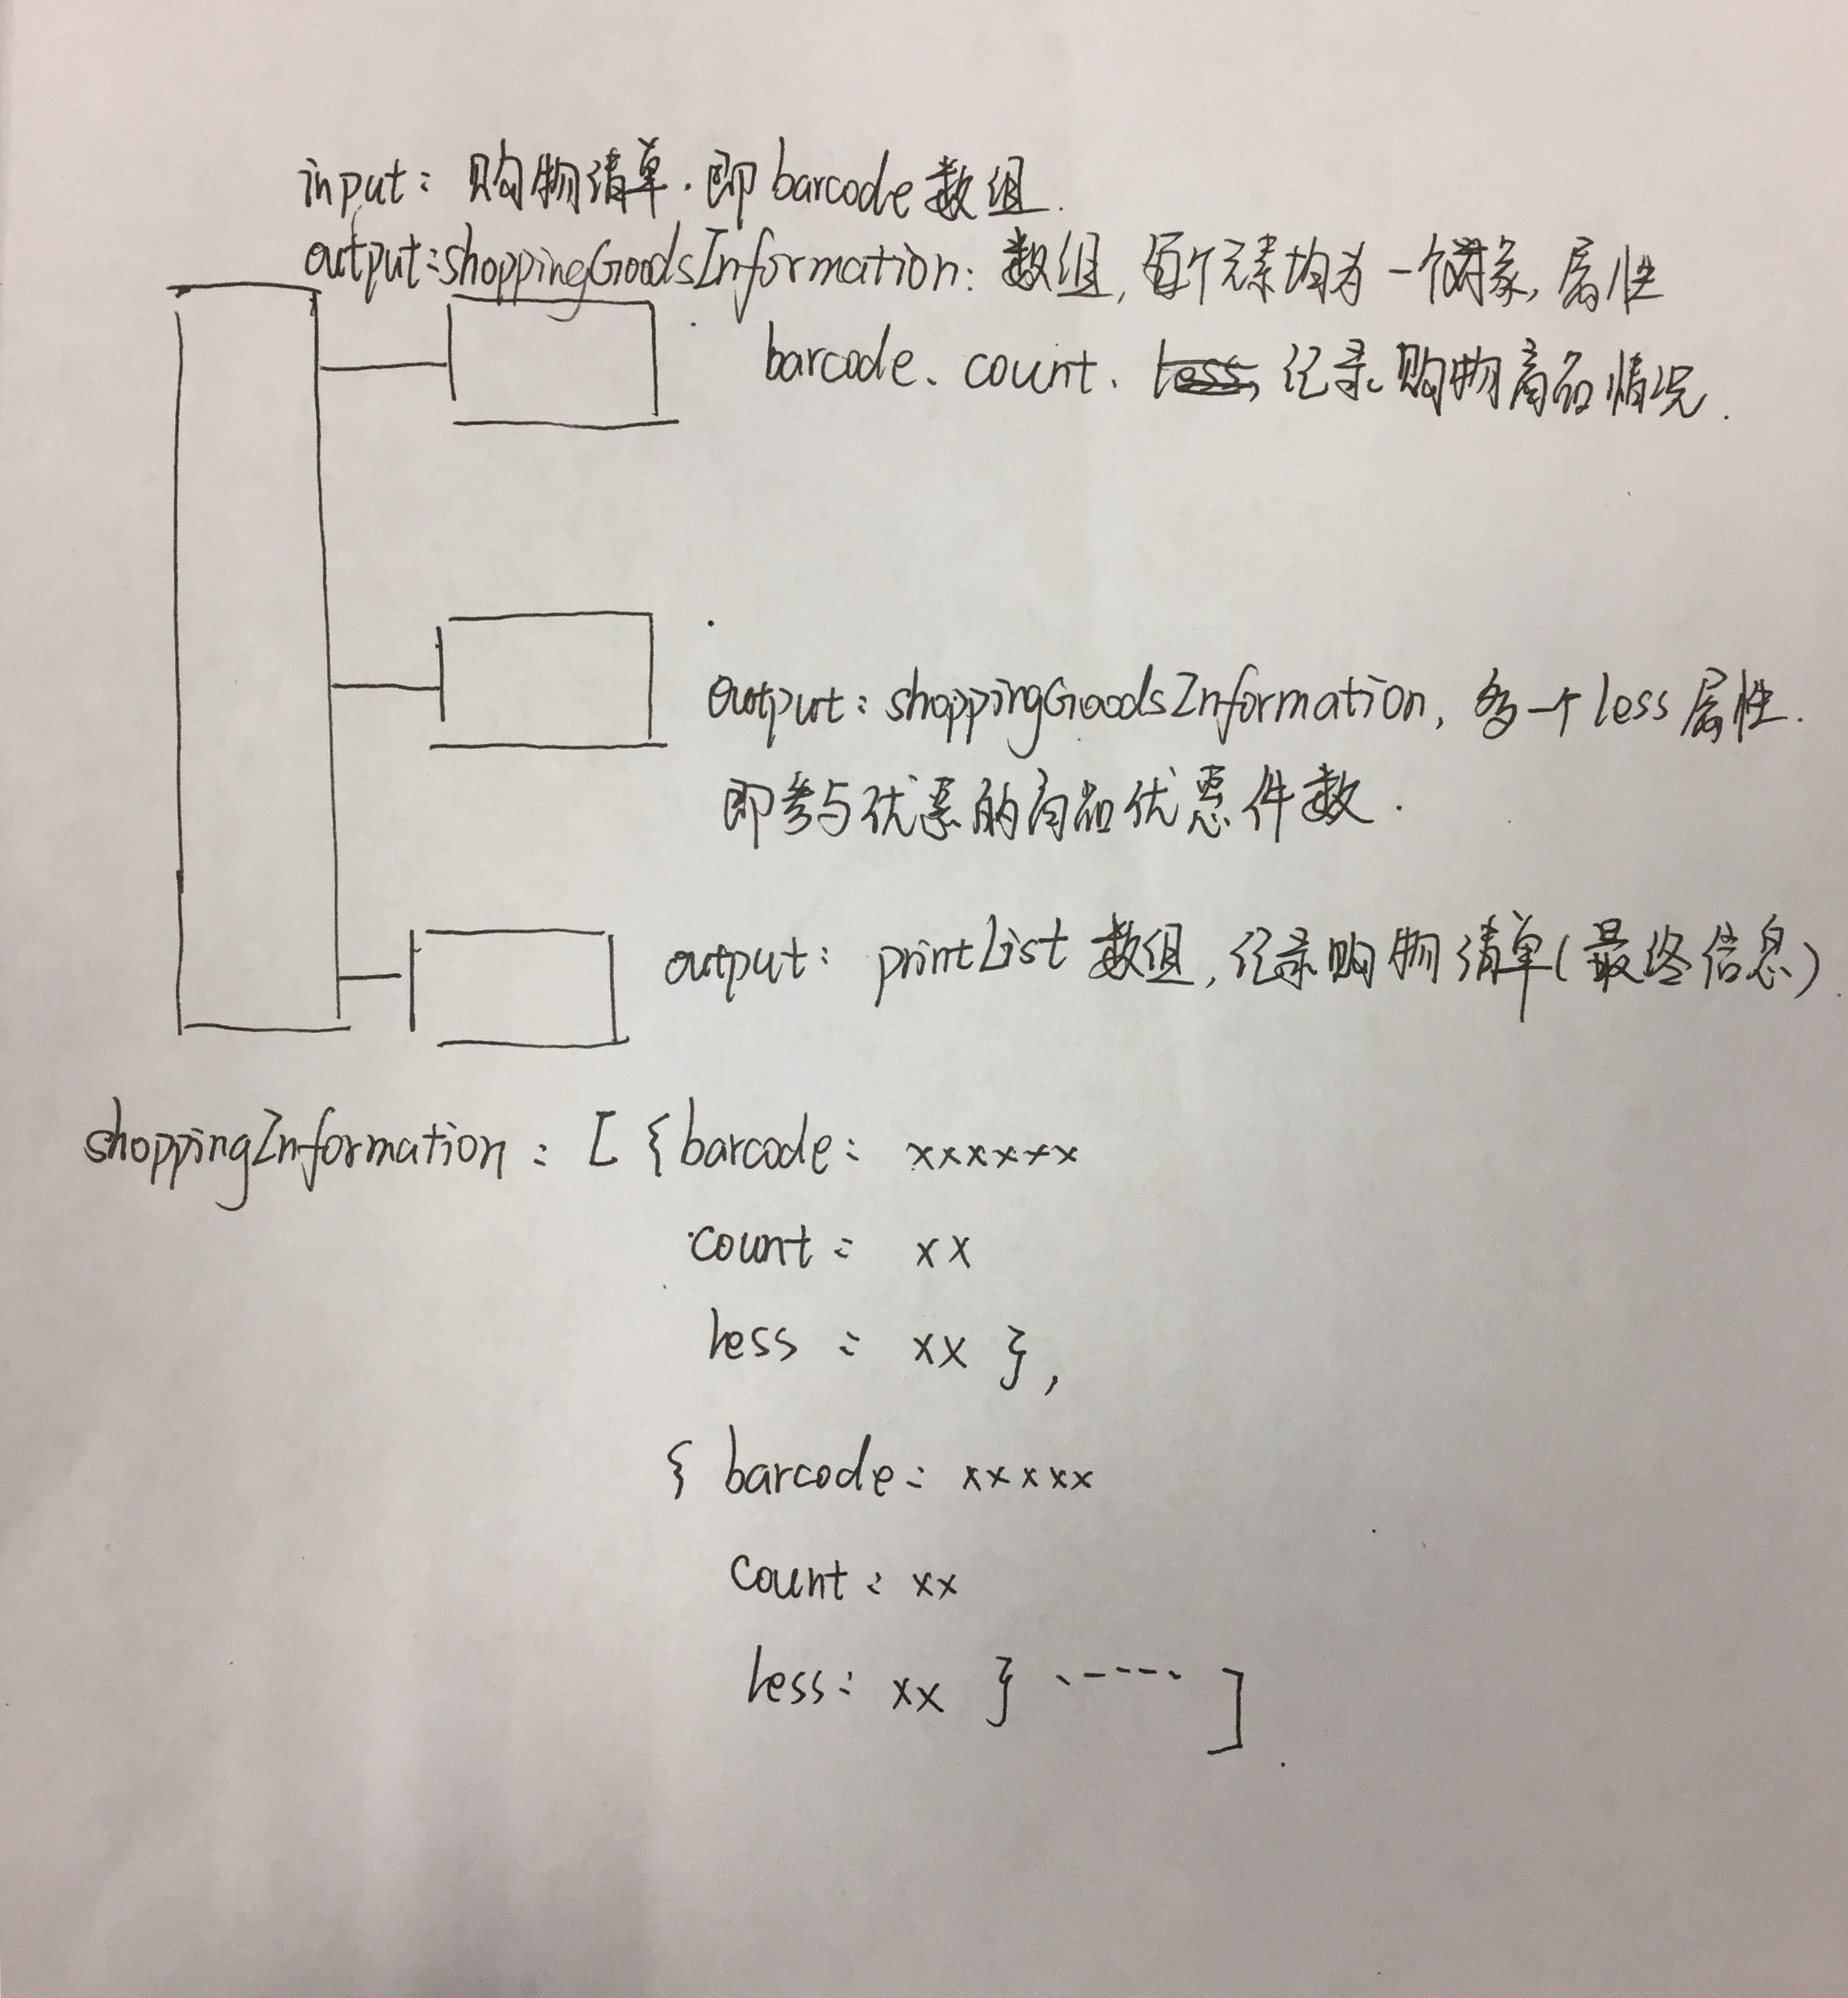 input: 购物清单.即barcode数组.
output:shoppingGoodsInformation: 数组,每个元素均为一个对象,属性
barcode、count、less, 纪录购物商品情况.
output: shoppingGoodsInformation, 多一个less属性.
即参与优惠的商品优惠件数.
output: printList 数组,纪录购物清单(最终信息)
shoppingInformation: [ {barcode: xxxxxx
count: xx
less : xx },
{ barcode: xxxxx
count: xx
less: xx } ----- ]